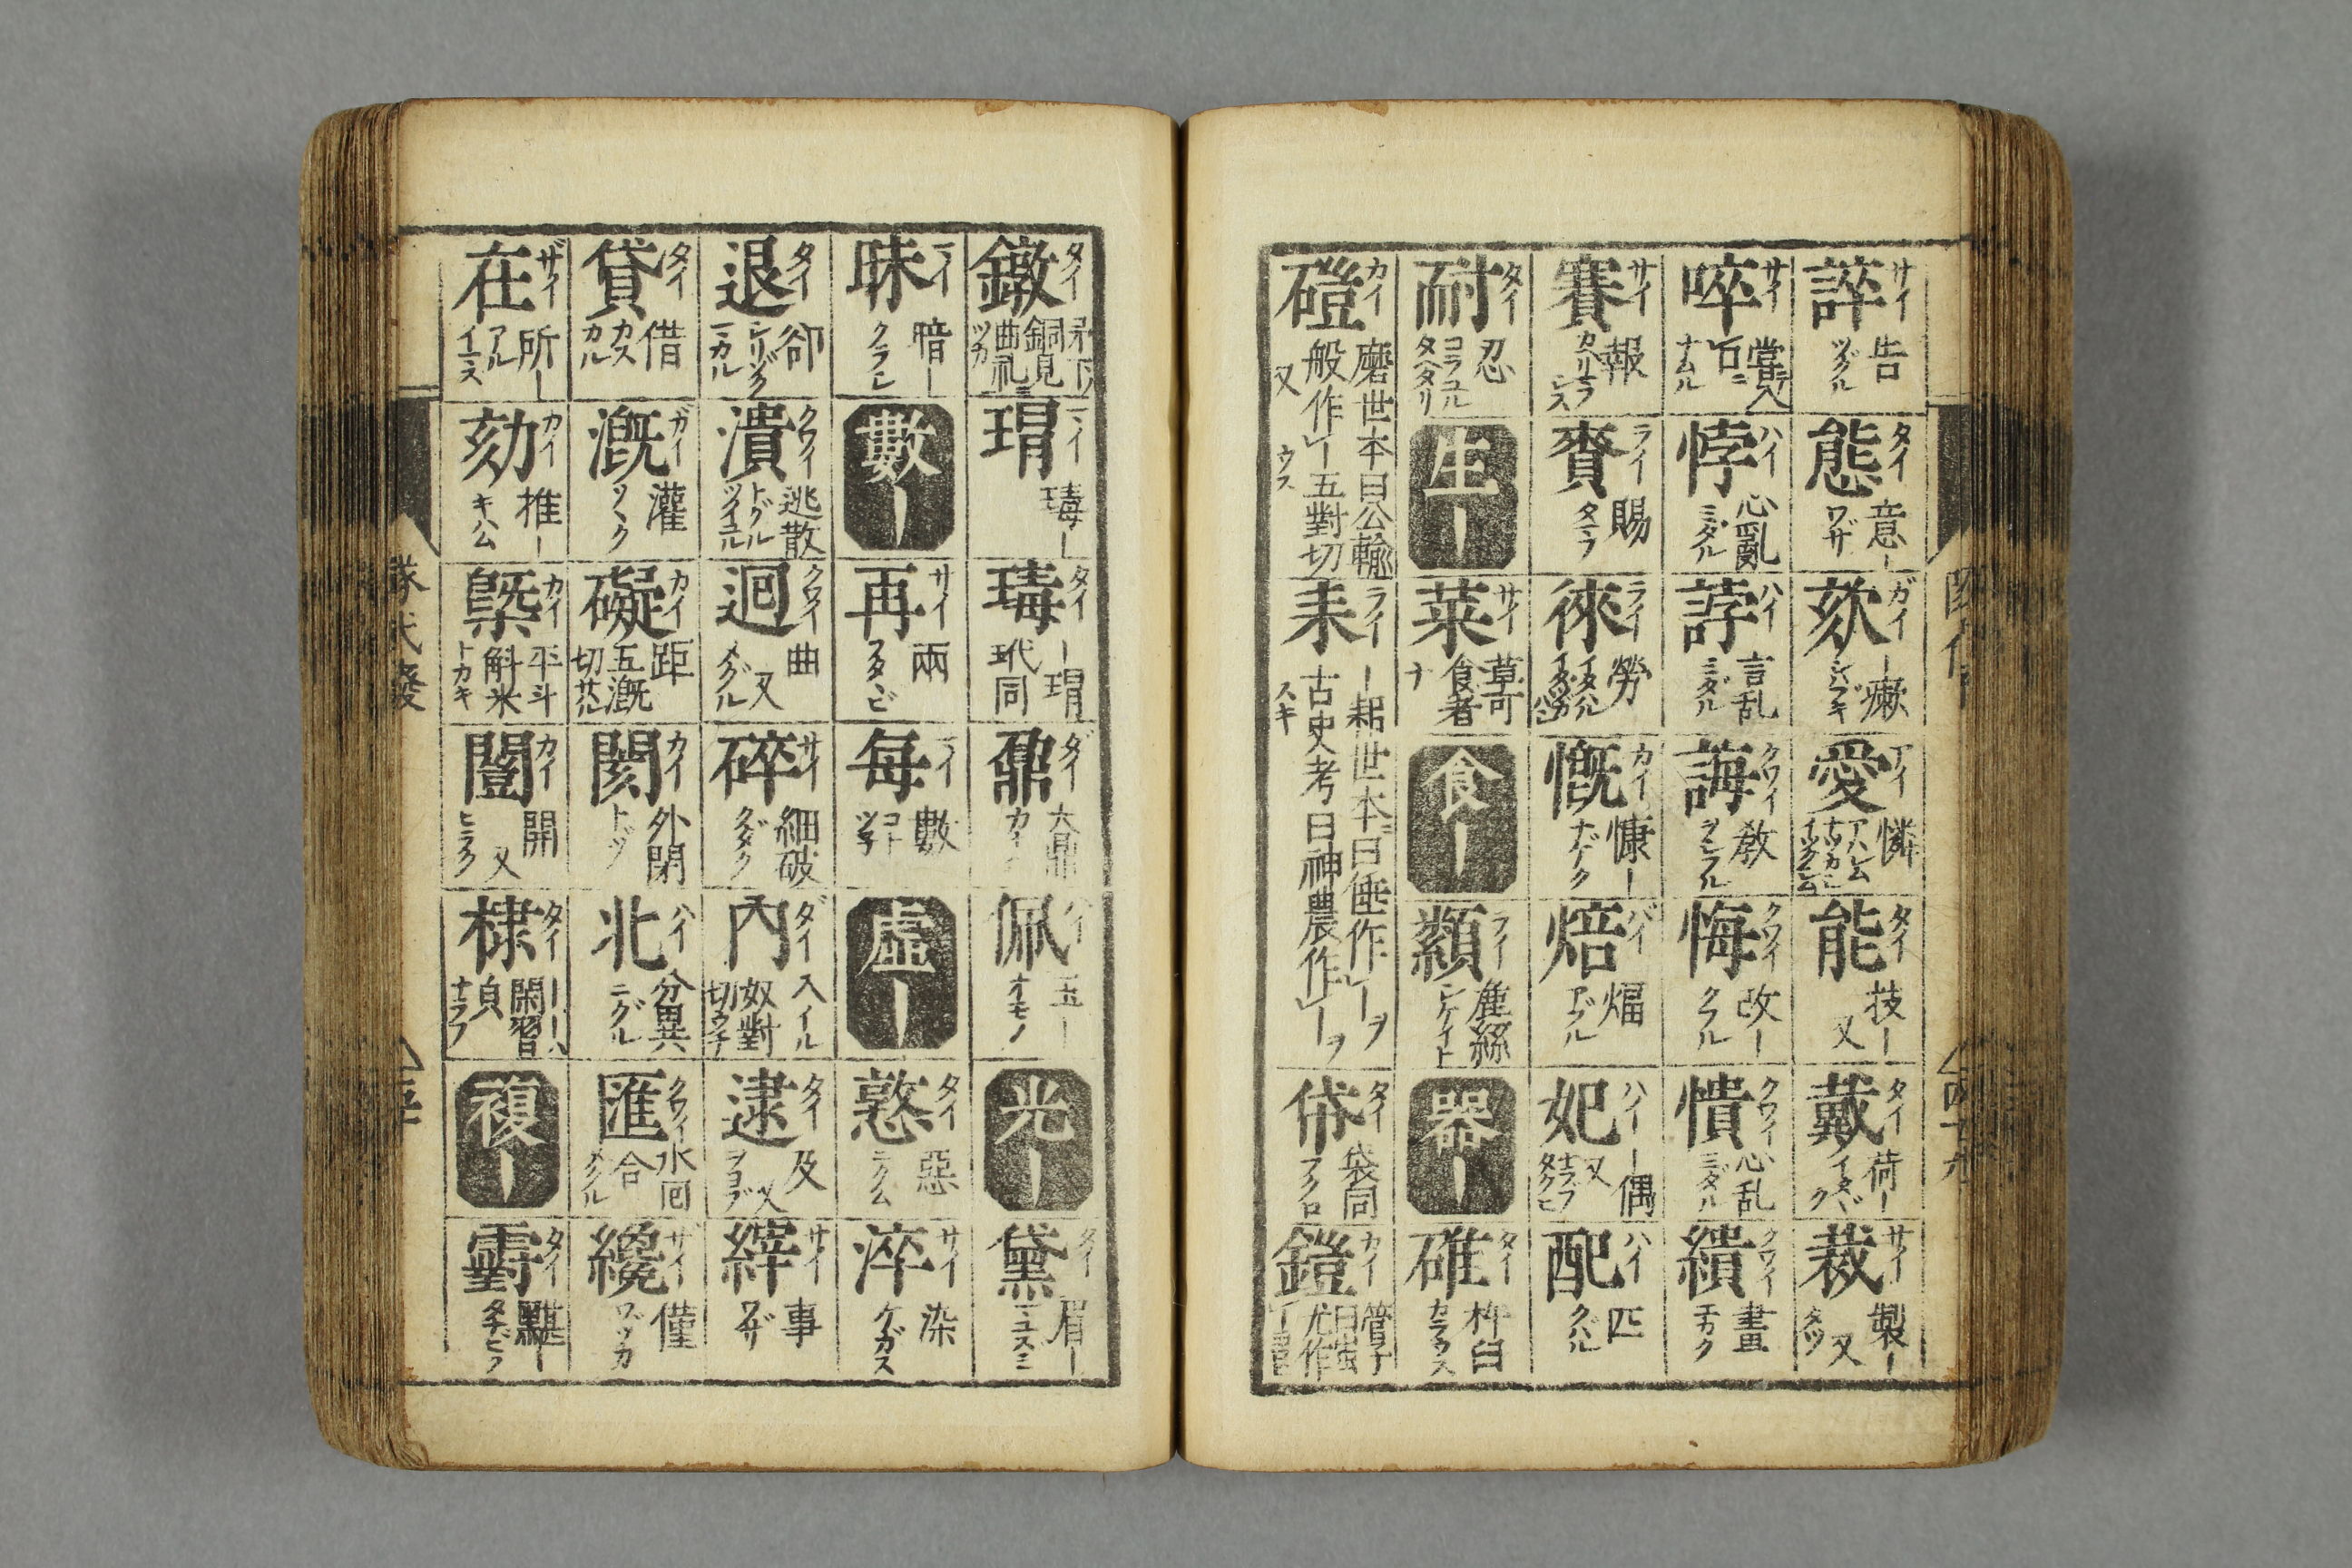 誶 サイ 告 ツグル
態 タイ 意ー ワザ
欬 ガイ ー瘶 シハブキ
愛 アイ 憐 アハレム
能 タイ 技ー 又
戴 タイ 荷ー イタヾク
裁 サイ 製ー 又 タツ
啐 サイ 嘗入口ニ ナムル
悖 ハイ 心亂 ミダル
誖 ハイ 言乱 ミダル
誨 クワイ 教 ヲシフル
悔 クワイ 改ー クフル
憒 クワイ 心乱 ミダル
繢 クワイ 畫 ヱカク
賽 サイ 報
賚 ライ 賜 タマフ
徠 ライ 勞
慨 カイ 慷ー ナゲク
焙 ハイ 煏 アブル
妃 ハイ ー偶 又 タグヒ
配 ハイ 匹 クバル
耐 タイ 忍 コラユル
生ー
菜 サイ 草可食者 ナ
食ー
纇 ライ
器ー
碓 タイ 杵臼 カラウス
磑 カイ 磨世本曰公輸般作ー五對切 又 ウス
耒 ライ ー耜世本曰倕作ー古史考曰神農作ー スキ
帒 タイ 袋同 フクロ
鎧 カイ 管子曰蚩尤作
鐓 タイ
瑁 マイ 瑇ー
瑇 タイ ー瑁 玳同
鼐 ダイ 大鼎
佩 ハイ 玉ー オモノ
光ー
黛 タイ 眉ー マユスミ
昧 マイ 暗ー クラシ
數ー
再 サイ 兩 フタヽビ
每 マイ 數
虛ー
憝 タイ 惡 ニクム
淬 サイ 染 ケガス
退 タイ 卻 シリゾク
潰 クワイ 逃散 ツイユル
迴 クワイ 曲 又 メグル
碎 サイ 細破 クダク
內 ダイ 入イル 奴對切ウチ
逮 タイ 及 又 ヲヨブ
縡 サイ 事 ワザ
貸 タイ 借 カス カル
溉 ガイ 灌 ソヽク
礙 カイ 距 五溉切
閡 カイ 外閉 トヅ
北 ハイ 分異 ニグル
匯 クワイ 水回合 メグル
纔 サイ 僅 ワヅカ
在 ザイ 所ー アル イマス
劾 カイ 推ー キハム
槩 カイ 平斗斛米 トカキ
闓 カイ 開 又 ヒラク
棣 タイ 閑習皃 ナラフ
複ー
霴 タイ
隊代廢